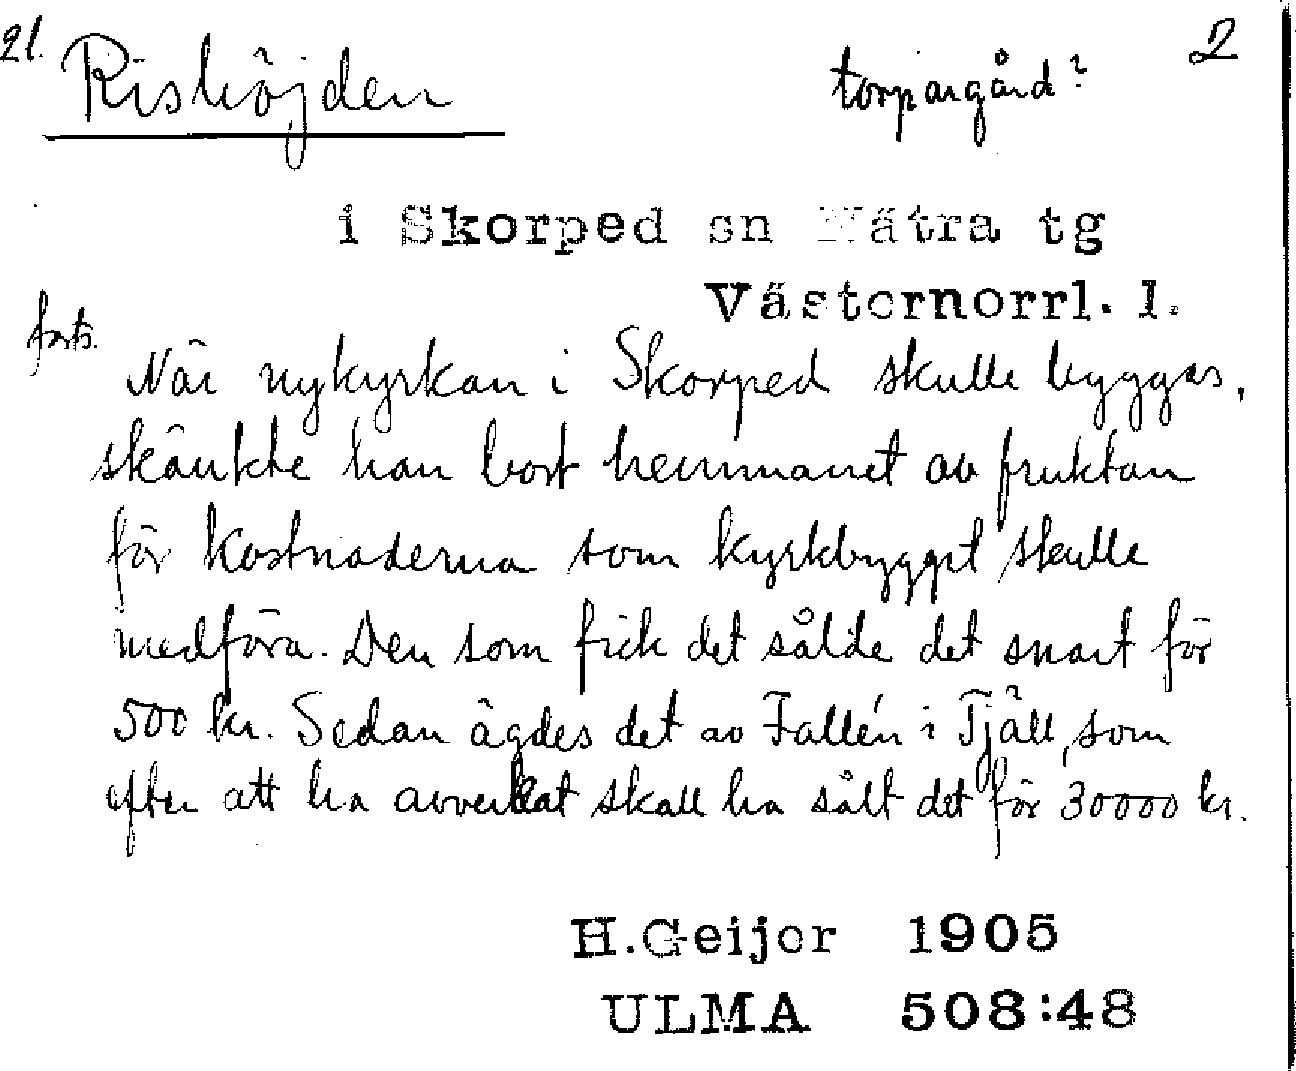 21. Rishöjden torpargård? 2
i Skorped sn Nätra tg
Västernorrl. l.
forts. När nykyrkan i Skorped skulle byggas,
skänkte han bort hemmanet av fruktan
för kostnaderna som kyrkbygget skulle
medföra. Den som fick det sålde det snart för
500 kr. Sedan ägdes det av Fallén i Tjäll, som
efter att ha avverkat skall ha sålt det för 30000 kr.
H.Geijer 1905
ULMA 508:48